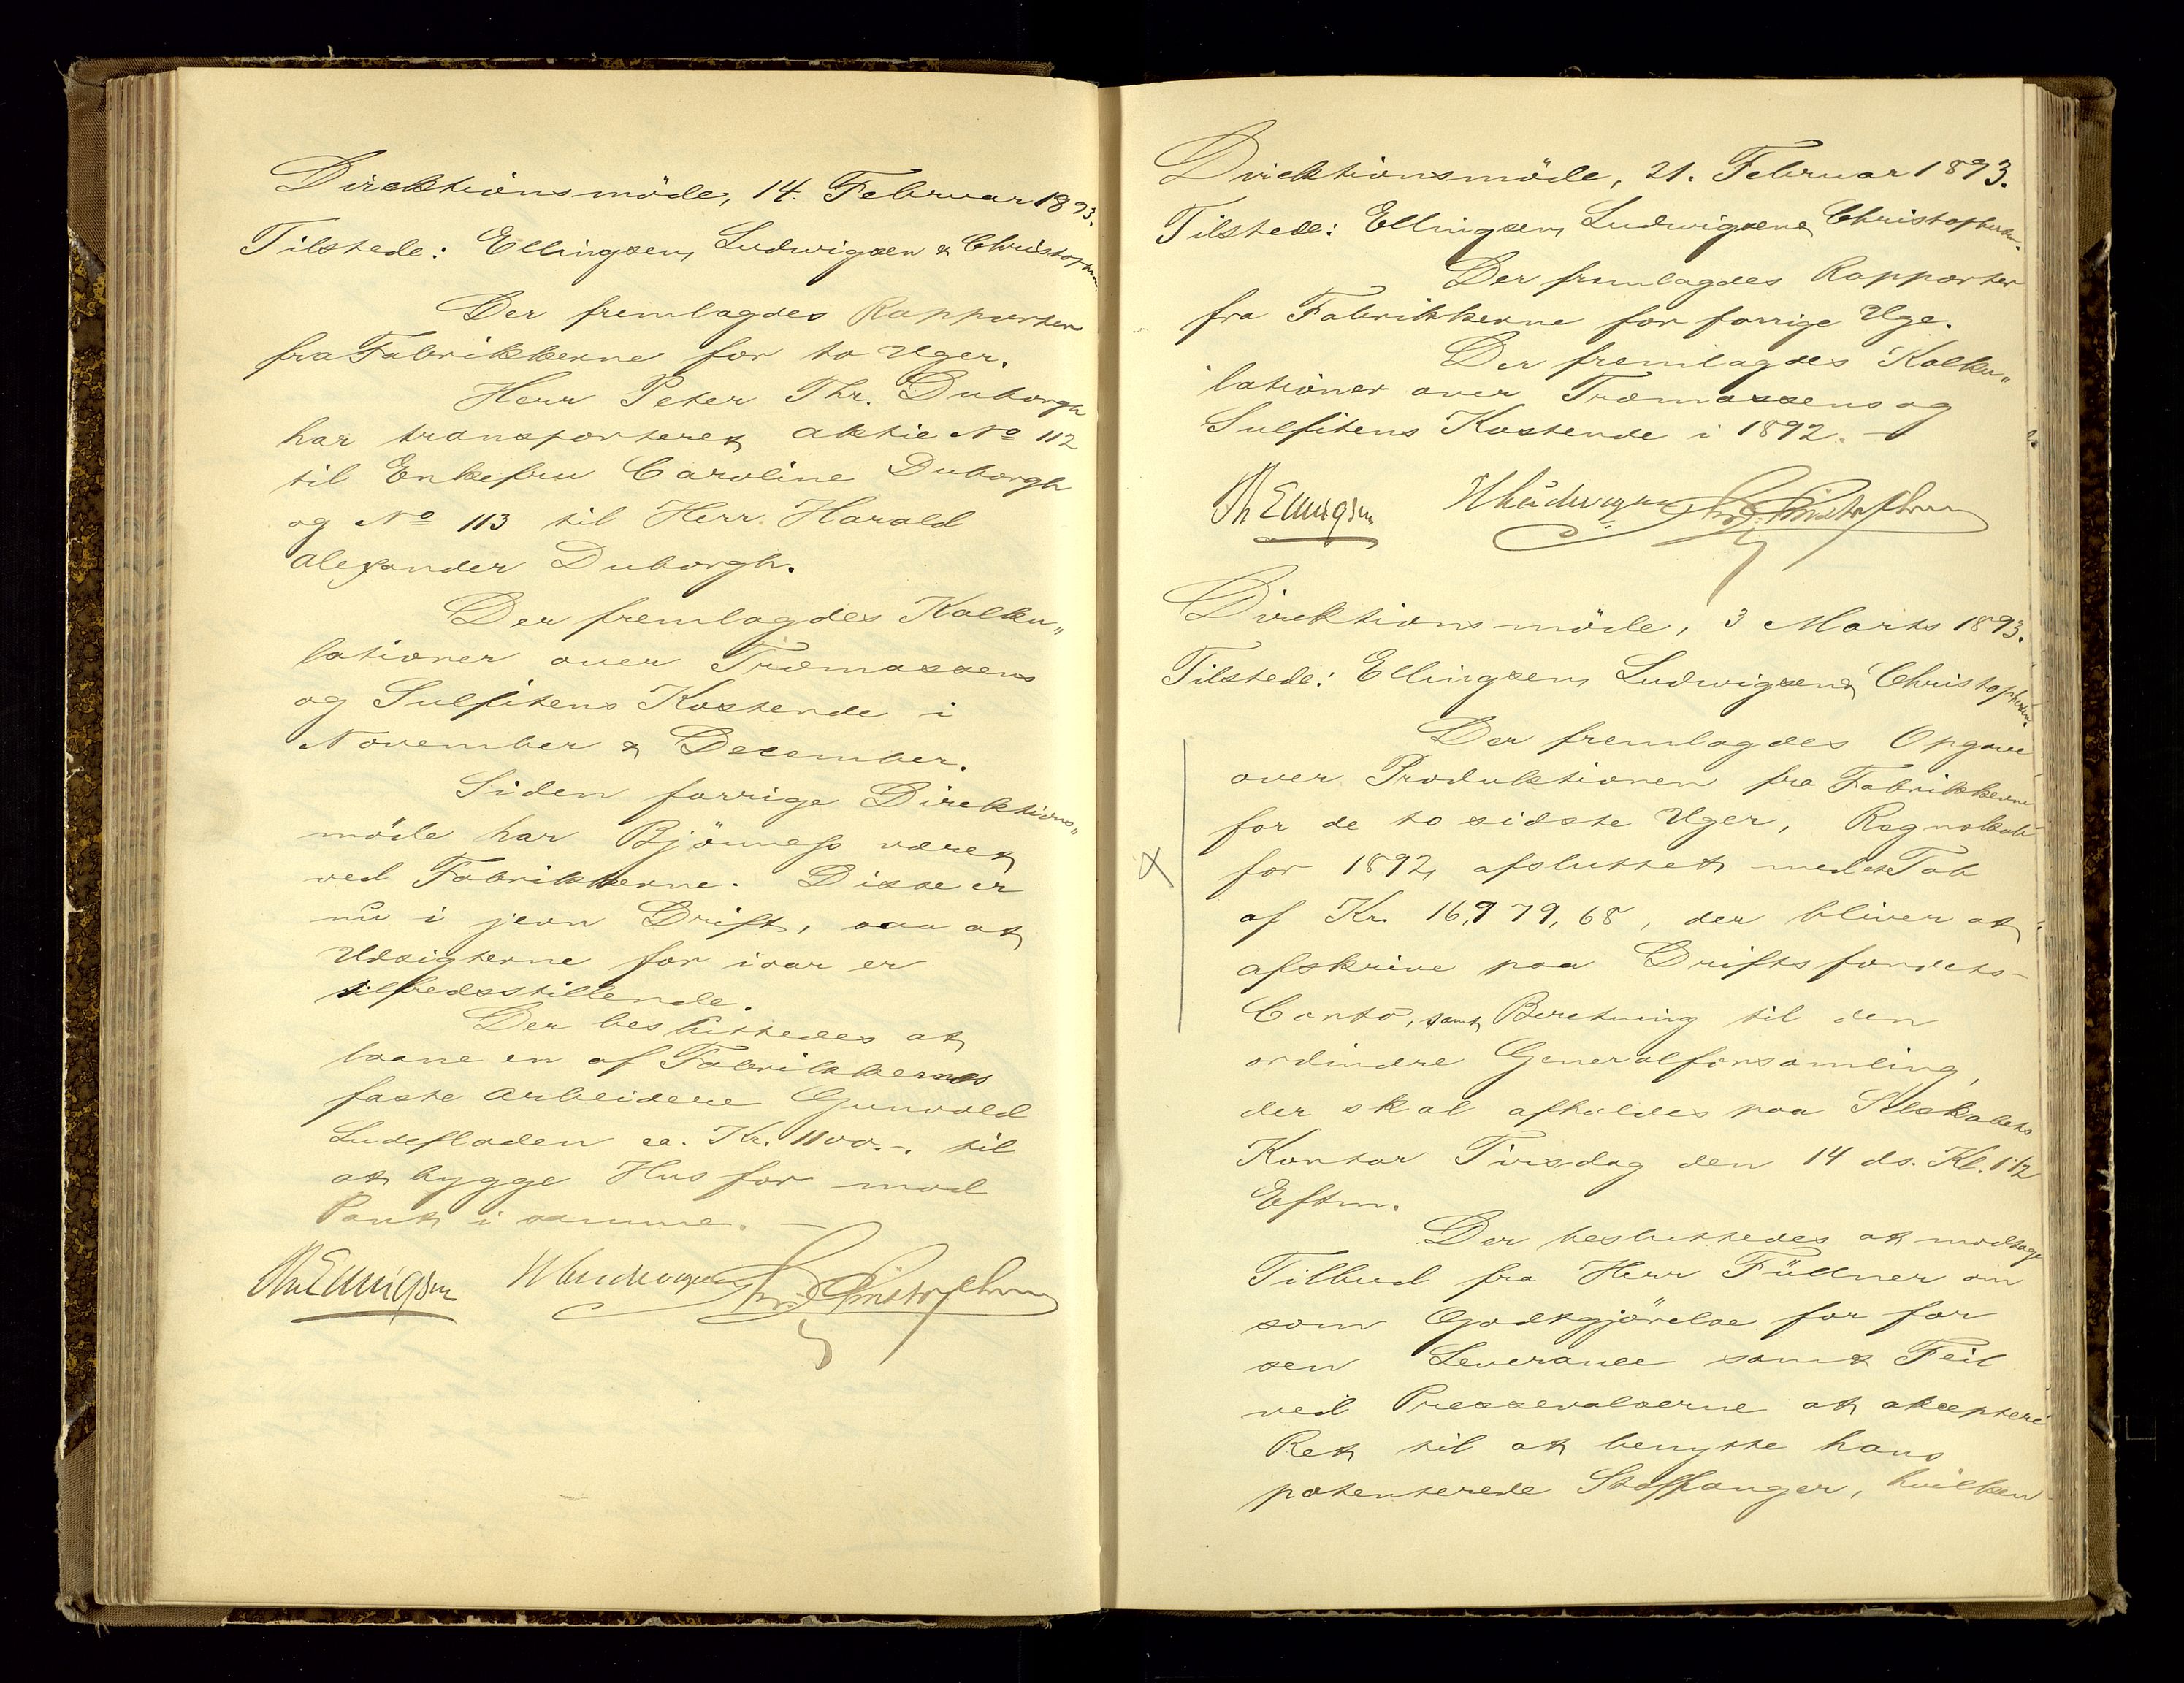 Direktionsmöde, 14. Februar 1893.
Tilstede: Ellingsen, Ludwigsen & Christophersen.
Der fremlagdes Rapporter
fra Fabrikkerne for to Uger.
Herr Peter Thr. Duborgh
har transporteret Aktie No 112
til Enkefru Caroline Duborgh
og No 113 til Herr Harald
Alexander Duborgh.
Der fremlagdes Kalku„
lationer over Træmassens
og Sulfitens Kostende i
November & December.
Siden forrige Direktions„
möde har Bjönness været
ved Fabrikkerne. Disse er
nu i jevn Drift, saa at
Udsigterne for iaar er
tilfredsstillende.
Der besluttedes at
laane en af Fabrikkernes
faste Arbeidere Gunvald
Ludefladen ca. Kr. 1100.-. til
at bygge Hus for mod
Pant i samme. -
Th Ellingsen Ludwigsen Chr. Christophersen
Direktionsmöde, 21. Februar 1893.
Tilstede: Ellingsen, Ludwigsen & Christophersen.
Der fremlagdes Rapporter
fra Fabrikkerne for forrige Uge.
Der fremlagdes Kalku„
lationer over Træmassens og
Sulfitens Kostende i 1892. -
Th Ellingsen Ludwigsen Chr. Christophersen
Direktionsmöde, 3 Marts 1893.
Tilstede: Ellingsen, Ludwigsen & Christophersen.
Der fremlagdes Opgave
over Produktionen fra Fabrikkerne
for de to sidste Uger, Regnskab
for 1892, afsluttet med et Tab
af Kr. 16,979,68, der bliver at
afskrive paa Driftsfondets-
Conto, samt Beretning til den
ordinære Generalforsamling,
der skal afholdes paa Selskabets
Kontor Tirsdag den 14 ds. Kl. 1 1/2
Eftm.
Der besluttedes at modtage
Tilbud fra Herr Füllner om
som Godtgjörelse for for
sen Leverance samt Feil
ved Pressevalserne at akceptere
Ret til at benytte hans
patenterede Stoffanger, hvilken